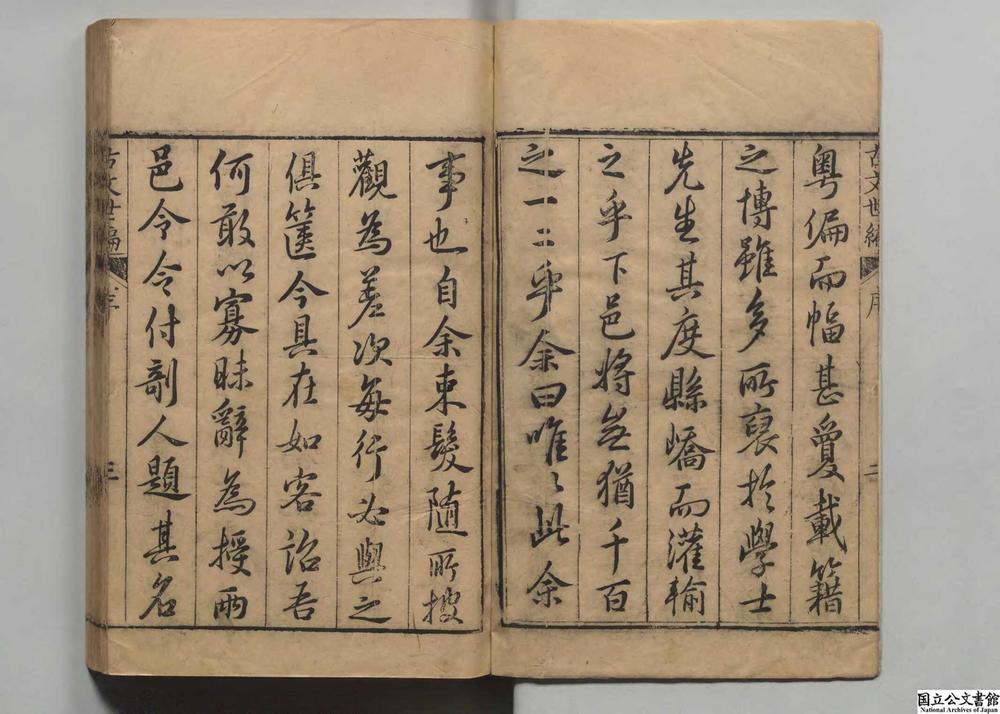 古文世編 序 二
粵偏而幅甚爰載籍
之博雖多所裒於學士
先生其度縣嶠而灌輸
之乎下邑將無猶千百
之一二乎余曰唯〻此余
事也自余束髮隨所披
觀為差次每行必與之
俱篋今具在如客詒吾
何敢以寡昧辭為授兩
邑令令付剞人題其名
古文世編 序 三
国立公文書館
National Archives of Japan